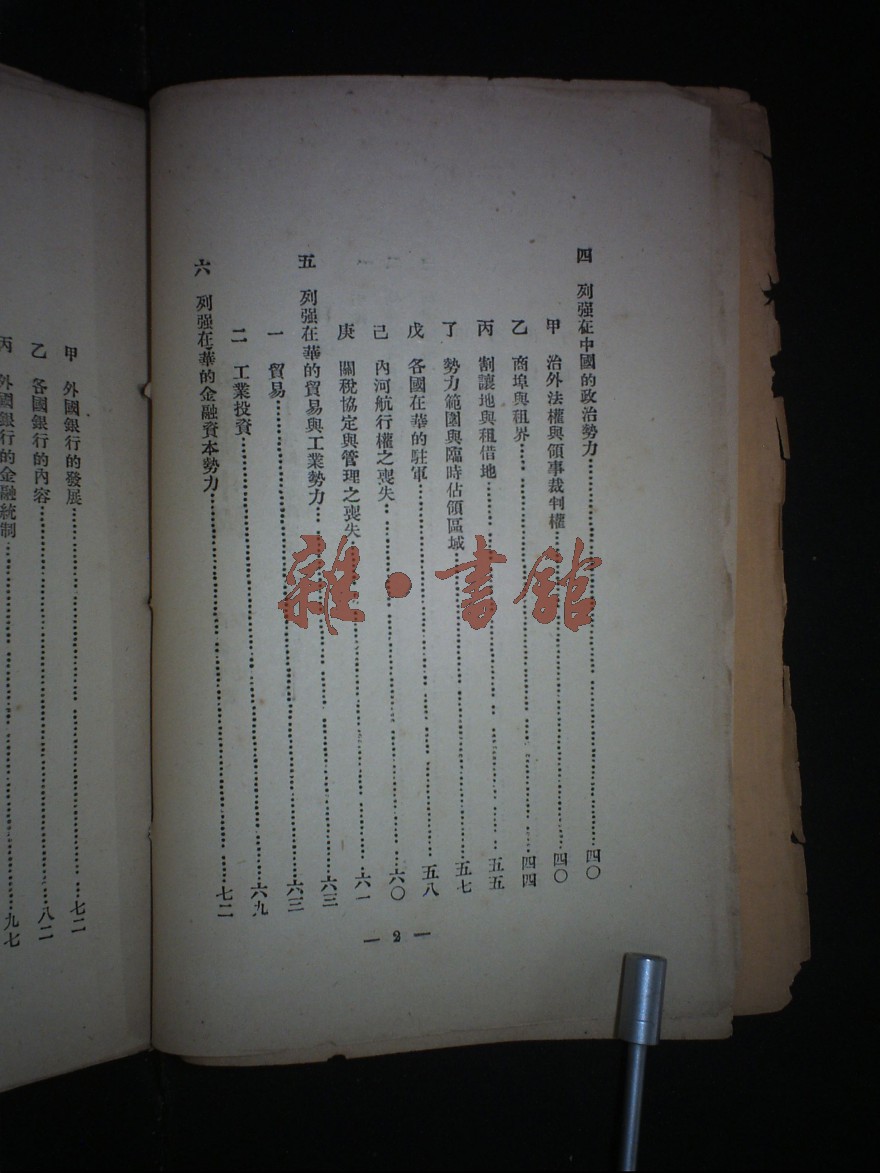 四 列强在中國的政治勢力……四〇
甲 治外法權與領事裁判權……四〇
乙 商埠與租界……四四
丙 割讓地與租借地……五五
丁 勢力範圍與臨時佔領區域……五七
戊 各國在華的駐軍……五八
己 內河航行權之喪失……六〇
庚 關稅協定與管理之喪失……六一
五 列强在華的貿易與工業勢力……六三
一 貿易……六三
二 工業投資……六九
六 列强在華的金融資本勢力……七二
— 2 —
甲 外國銀行的發展……七二
乙 各國銀行的內容……八二
丙 外國銀行的金融統制……九七
雜·書館